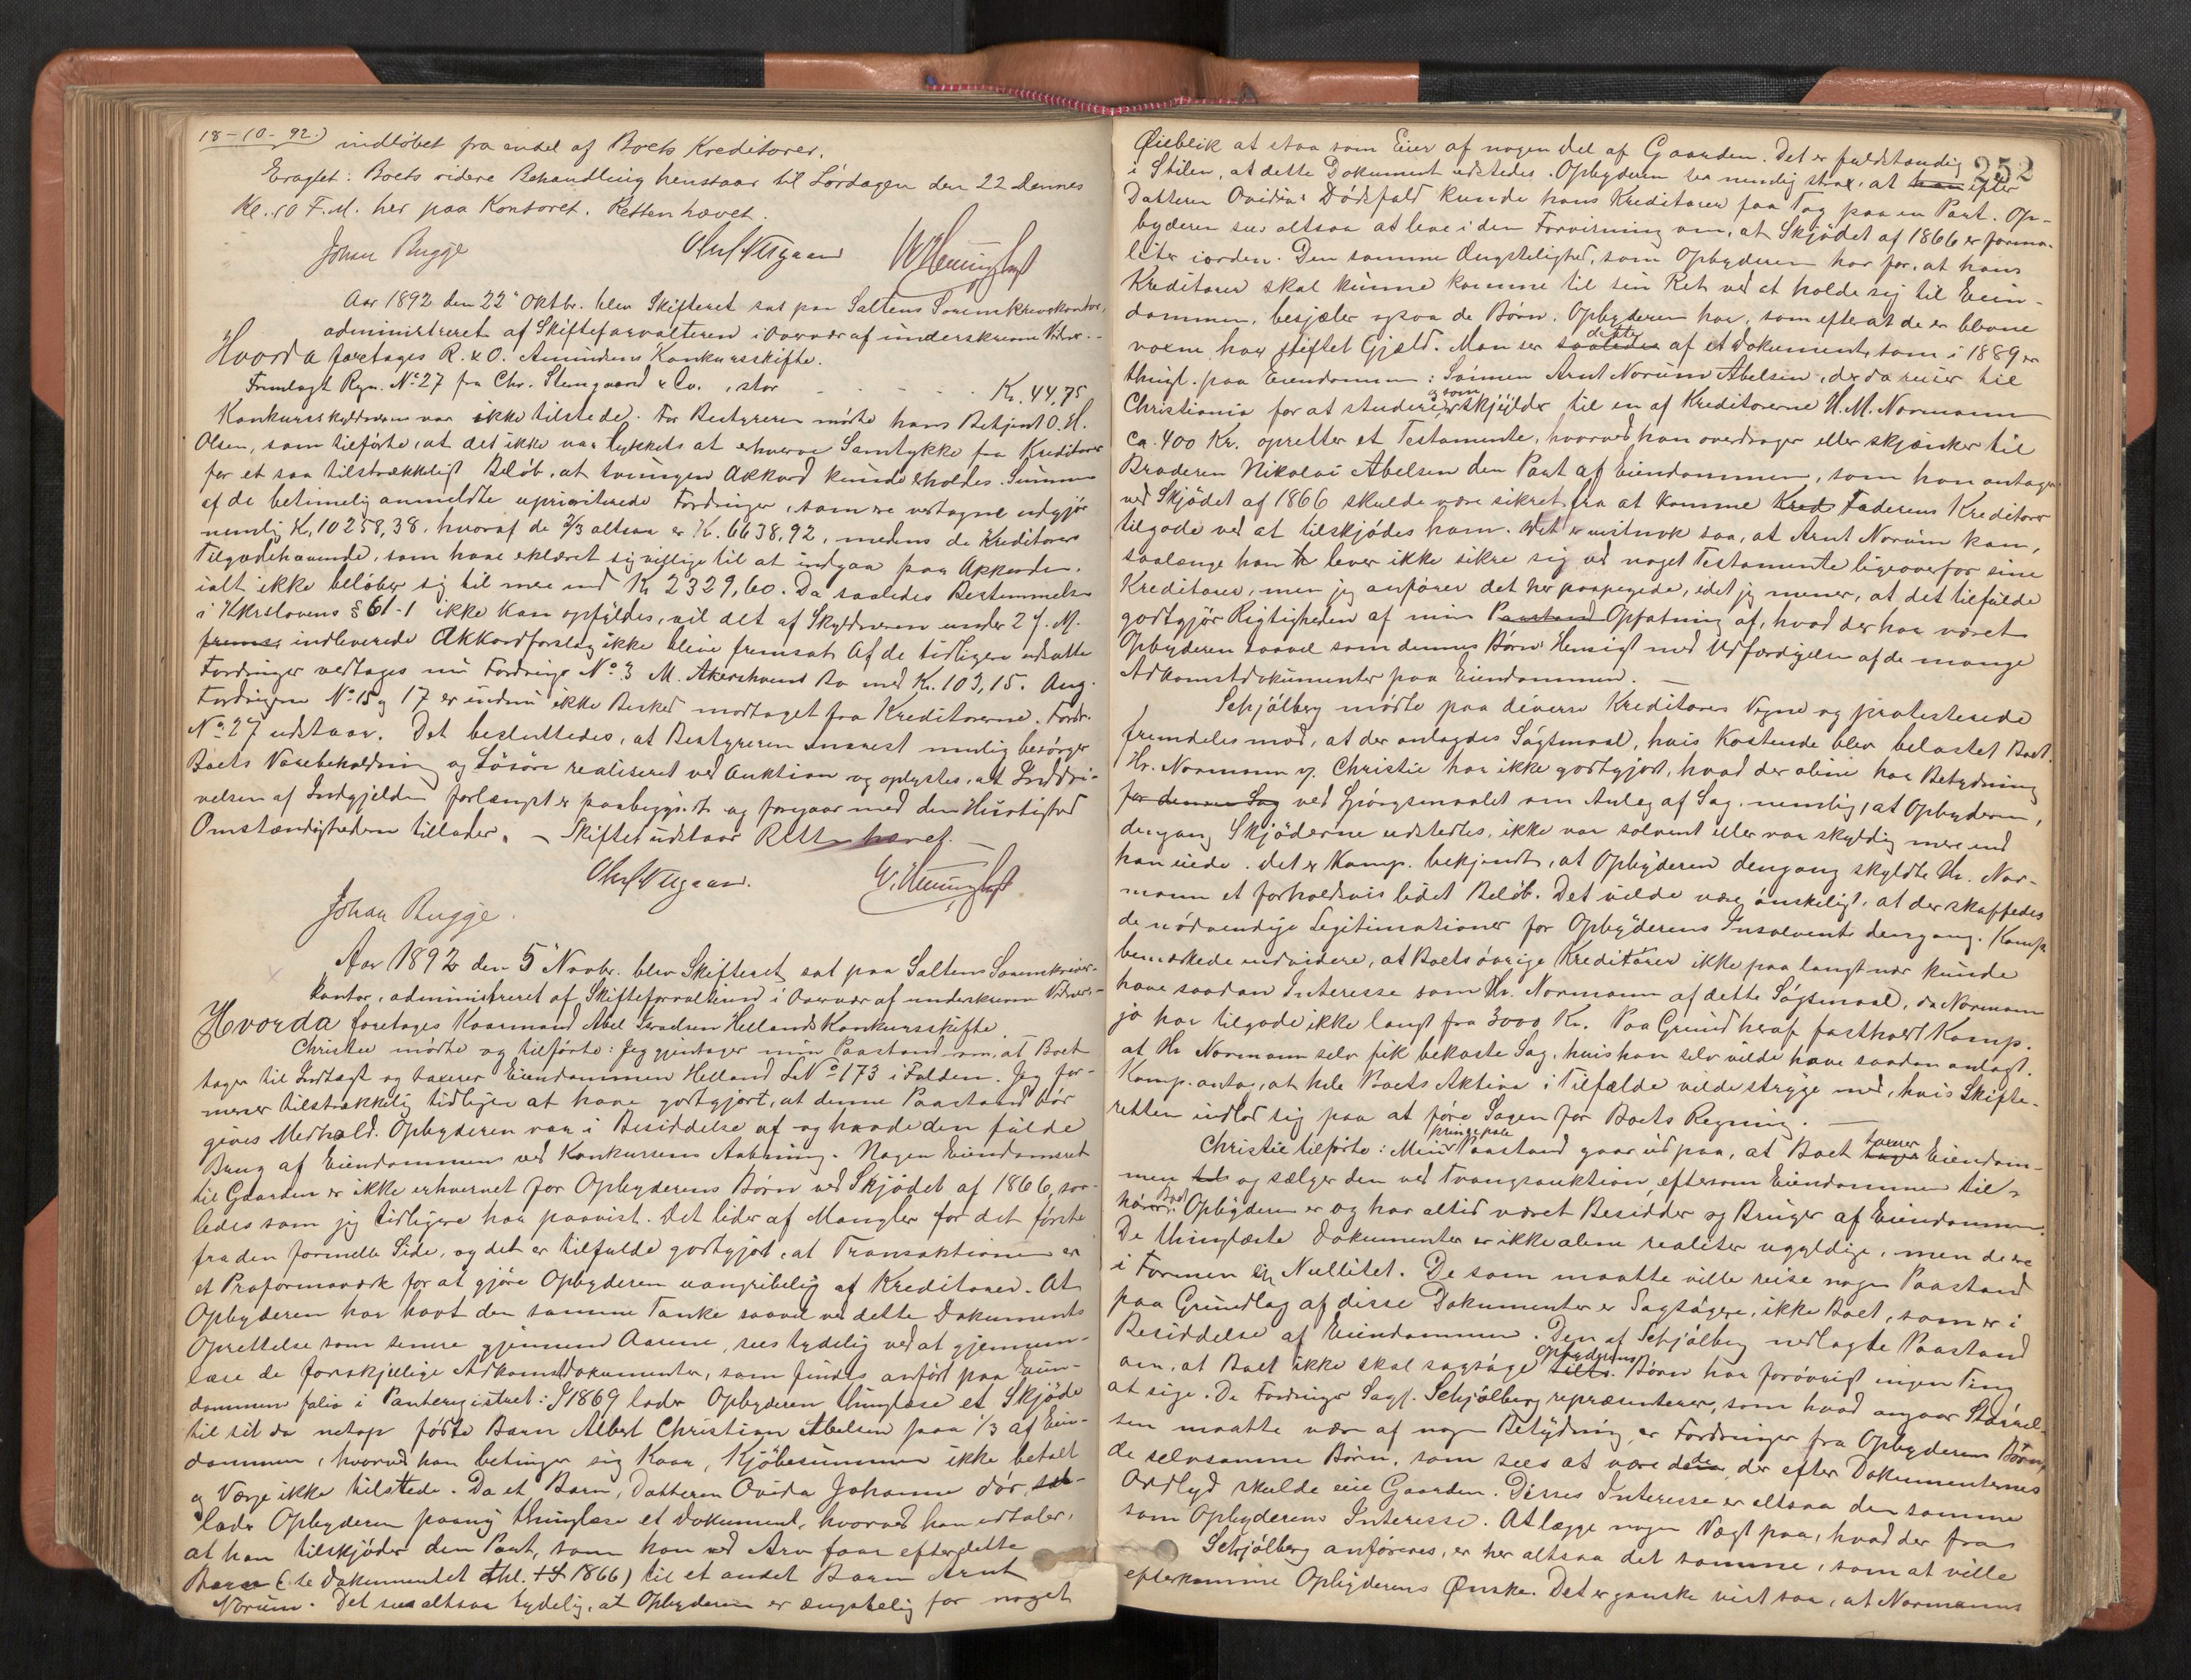 18-10-92.) indløbet fra endel af Boets Kreditorer.
Eragtet: Boets videre Behandling henstaar til Lørdagen den 22 dennes
Kl. 10 F.M. her paa Kontoret. Retten hævet.
Johan Bugge
Aar 1892 den 22' Oktbr. blev Skifteret sat paa Saltens Sorenskriverkontor,
administreret af Skifteforvalteren i Overvær af underskrevne Vidner.-
Hvorda foretages R. & O. Amundsens Konkursskifte.
Fremlagt Regn. No 27 fra Chr. Steengaard & Co., stor - - - - Kr. 44,75
Konkursskyldneren var ikke tilstede. For Bestyreren mødte hans Betjent O. H.
Olsen, som tilførte, at det ikke var lykkets at erhverve Samtykke fra Kreditorer
for et saa tilstrækkeligt Beløb, at tvungen Akkord kunde erholdes. Summen
af de betimelig anmeldte uprioriterede Fordringer, som ere vedtagne udgjør
nemlig K. 10258,38. hvoraf de 2/3 altsaa er K. 6638,92, medens de Kreditorers
Tilgodehavende, som have erklæret sig villige til at indgaa paa Akkorden.
ialt ikke beløber sig til mere end Kr 2329,60. Da saaledes Bestemmelsen
i Kkrslovens § 61-1 ikke kan opfyldes, vil det af Skyldneren under 24. M.
frems. indleverede Akkordforslag ikke blive fremsat. Af de tidligere udsatte
Fordringer vedtages nu Fordringe No 3 M. Akershouds Bo med Kr. 103,15. Ang.
Fordringerne No 15 og 17 er endnu ikke Besked modtaget fra Kreditorerne. Fordr.
No 27 udstaar. Det besluttedes, at Bestyreren snarest mulig besørger
Boets Varebeholdning og Løsøre realiseret ved Auktion og oplystes, at Inddri-
velsen af Indgjælden forlængst er paabegyndt og foregaar med den Hurtighed
Omstændighederne tillader. - Skiftet udstaar Retten hævet. -
Johan Bugge.
Aar 1892 den 5' Novbr. blev Skifteret sat paa Saltens Sorenskriver-
kontor, administreret af Skifteforvalteren i Overvær af underskrevne Vidner-
Hvorda foretages Kaarmand Abel Israelsen Hellands Konkursskifte.
Christie mødte og tilførte: Jeg gjentager min Paastand om, at Boet
tager til Indtægt og taxerer Eiendommen Helland L No 173 i Folden. Jeg for-
mener tilstrækkelig tidligere at have godtgjort, at denne Paastand bør
gives Medhold. Opbyderen var i Besiddelse af og havde den fulde
Brug af Eiendommen ved Konkursens Aabning. Nogen Eiendomsret
til Gaarden er ikke erhvervet for Opbyderens Børn ved Skjødet af 1866, saa-
ledes som jeg tidligere har paavist. Det lider af Mangler for det første
fra den formelle Side, og det er tilfulde godtgjort, at Transaktionen er
et Proformaværk for at gjøre Opbyderen uangribelig af Kreditorer. At
Opbyderen har havt den samme Tanke saavel ved dette Dokuments
Oprettelse som senere gjennem Aarene, sees tydelig ved at gjennem-
læse de forskjellige Adkomstdokumenter, som findes anført paa Eien-
dommens folio i Panteregistret: I 1869 lader Opbyderen thinglæse et Skjøde
til sit da netop fødte Barn Albert Christian Abelsen paa 1/3 af Eien-
dommen, hvorved han betinger sig Kaar, Kjøbesummen ikke betalt
og Værge ikke tilstede. Da et Barn, Datteren Ovida Johanne dør, sel-
lader Opbyderen paany thinglæse et Dokument, hvorved han udtaler,
at han tilskjøder den Part, som han ved Arv faar efter dette
Barn (se Dokumentet thl. 1866) til et andet Barn Arnt
Norum. Det sees altsaa tydelig, at Opbyderen er ængstelig for noget
252
Øieblik at staa som Eier af nogen del af Gaarden. Det er fuldstændig
i Stilen, at dette Dokument udstedes. Opbyderen saa nemlig strax, at han efter
Datteren Ovidias Dødsfald kunde hans Kreditorer faa Tag paa en Part. Op-
byderen sees altsaa at leve i den Forvisning om, at Skjødet af 1866 er forma-
liter iorden. Den samme Ængstelighed, som Opbyderen har for, at hans
Kreditorer skal kunne komme til sin Ret ved at holde sig til Eien-
dommen, besjæler ogsaa de Børn. Opbyderen har, som efterat de er blevne
voxne har stiftet Gjæld. Man ser saaledes dette af et Dokument, som i 1889 er
thingl. paa Eiendommen: Sønnen Arnt Norum Abelsen, der da reiser til
Christiania for at studere og som er skyldr til en af Kreditorerne H. M. Normann
ca. 400 Kr. opretter et Testamente, hvorved han overdrager eller skjænker til
Broderen Nikolai Abelsen den Part af Eiendommen, som han antager
ved Skjødet af 1866 skulde være sikret fra at komme Kred Faderens Kreditorer
tilgode ved at tilskjødes ham. Det er vistnok saa, at Arnt Norum kan,
saalænge han lever ikke sikre sig ved noget Testamente ligeoverfor sine
Kreditorer, men jeg anfører det her paapegede, idet jeg mener, at det tilfulde
godtgjør Rigtigheden af min Paastand Opfatning af, hvad der har været
Opbyderen saavel som dennes Børns Hensigt med Udfærdigelsen af de mange
Adkomstdokumenter paa Eiendommen. -
Schjølberg mødte paa diverse Kreditorers Vegne og protesterede
fremdeles mod, at der anlagdes Søgsmaal, hvis Kostende blev belastet Boet.
Hr. Normann v. Christie har ikke godtgjort, hvad der alene har Betydning
for denne Sag ved Spørgsmaalet om Anlæg af Sag, nemlig, at Opbyderen,
dengang Skjøderne udstedtes, ikke var solvent eller var skyldig mere end
han eiede. Det er Komp. bekjendt, at Opbyderen dengang skyldte Hr. Nor-
mann et forholdsvis lidet Beløb. Det vilde være ønskeligt, at der skaffedes
de nødvendige Legitimationer for Opbyderens Insolvents dengang. Komp.
bemærkede endvidere, at Boets øvrige Kreditorer ikke paa langt nær kunde
have saadan Interesse som Hr. Normann af dette Søgsmaal, da Normann
jo har tilgode ikke langt fra 3000 Kr. Paa Grund heraf fastholdt Komp.
at Hr Normann selv fik bekoste Sag, hvis han selv vilde have saadan anlagt.
Komp. antog, at hele Boets Aktiva i Tilfælde vilde stryge med, hvis Skifte-
retten indlod sig paa at føre Sagen for Boets Regning. -
Christie tilførte: Min principale Paastand gaar ud paa, at Boet tager taxerer Eiendom-
men og sælger den ved Tvangsauktion, eftersom Eiendommen til-
hører Boet. Opbyderen er og har altid været Besidder og Bruger af Eiendommen.
De thinglæste Dokumenter er ikke alene realiter ugyldige, men de ere
i Formen en Nullitet. De som maatte ville reise nogen Paastand
paa Grundlag af disse Dokumenter er Sagsøgere, ikke Boet, som er i
Besiddelse af Eiendommen. Den af Schjølberg nedlagte Paastand
om, at Boet ikke skal sagsøge Opbyderens Børn har forøvrigt ingen Ting
at sige. De Fordringer Sagf. Schjølberg repræsenterer, som hvad angaar Størrel-
sen maatte være af nogen Betydning, er Fordringer fra Opbyderens Børn,
de selvsamme Børn, som sees at være dem, der efter Dokumenternes
Ordlyd skulde eie Gaarden. Disses Interesse er altsaa den samme
som Opbyderens Interesse. At lægge nogen Vægt paa, hvad der fra
Schjølberg anføres, er her altsaa det samme, som at ville
efterkomme Opbyderens Ønske. Det er ganske vist saa, at Normanns